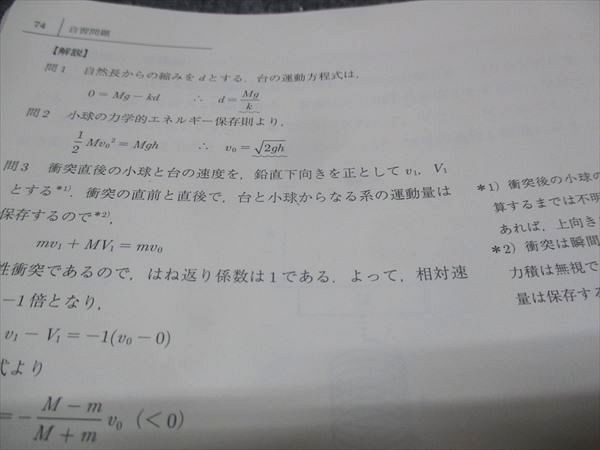 74 自習問題
【解説】
問1 自然長からの縮みをdとする.台の運動方程式は,
0 = Mg − kd ∴ d = Mg/k
問2 小球の力学的エネルギー保存則より,
1/2 Mv₀² = Mgh ∴ v₀ = √2gh
問3 衝突直後の小球と台の速度を,鉛直下向きを正として v₁, V₁
とする*1).衝突の直前と直後で,台と小球からなる系の運動量は
保存するので*2),
mv₁ + MV₁ = mv₀
性衝突であるので,はね返り係数は1である.よって,相対速
−1倍となり,
v₁ − V₁ = −1(v₀ − 0)
式より
= − (M − m)/(M + m) v₀ (<0)
*1) 衝突後の小球の
算するまでは不明
あれば,上向き
*2) 衝突は瞬間
力積は無視で
量は保存する